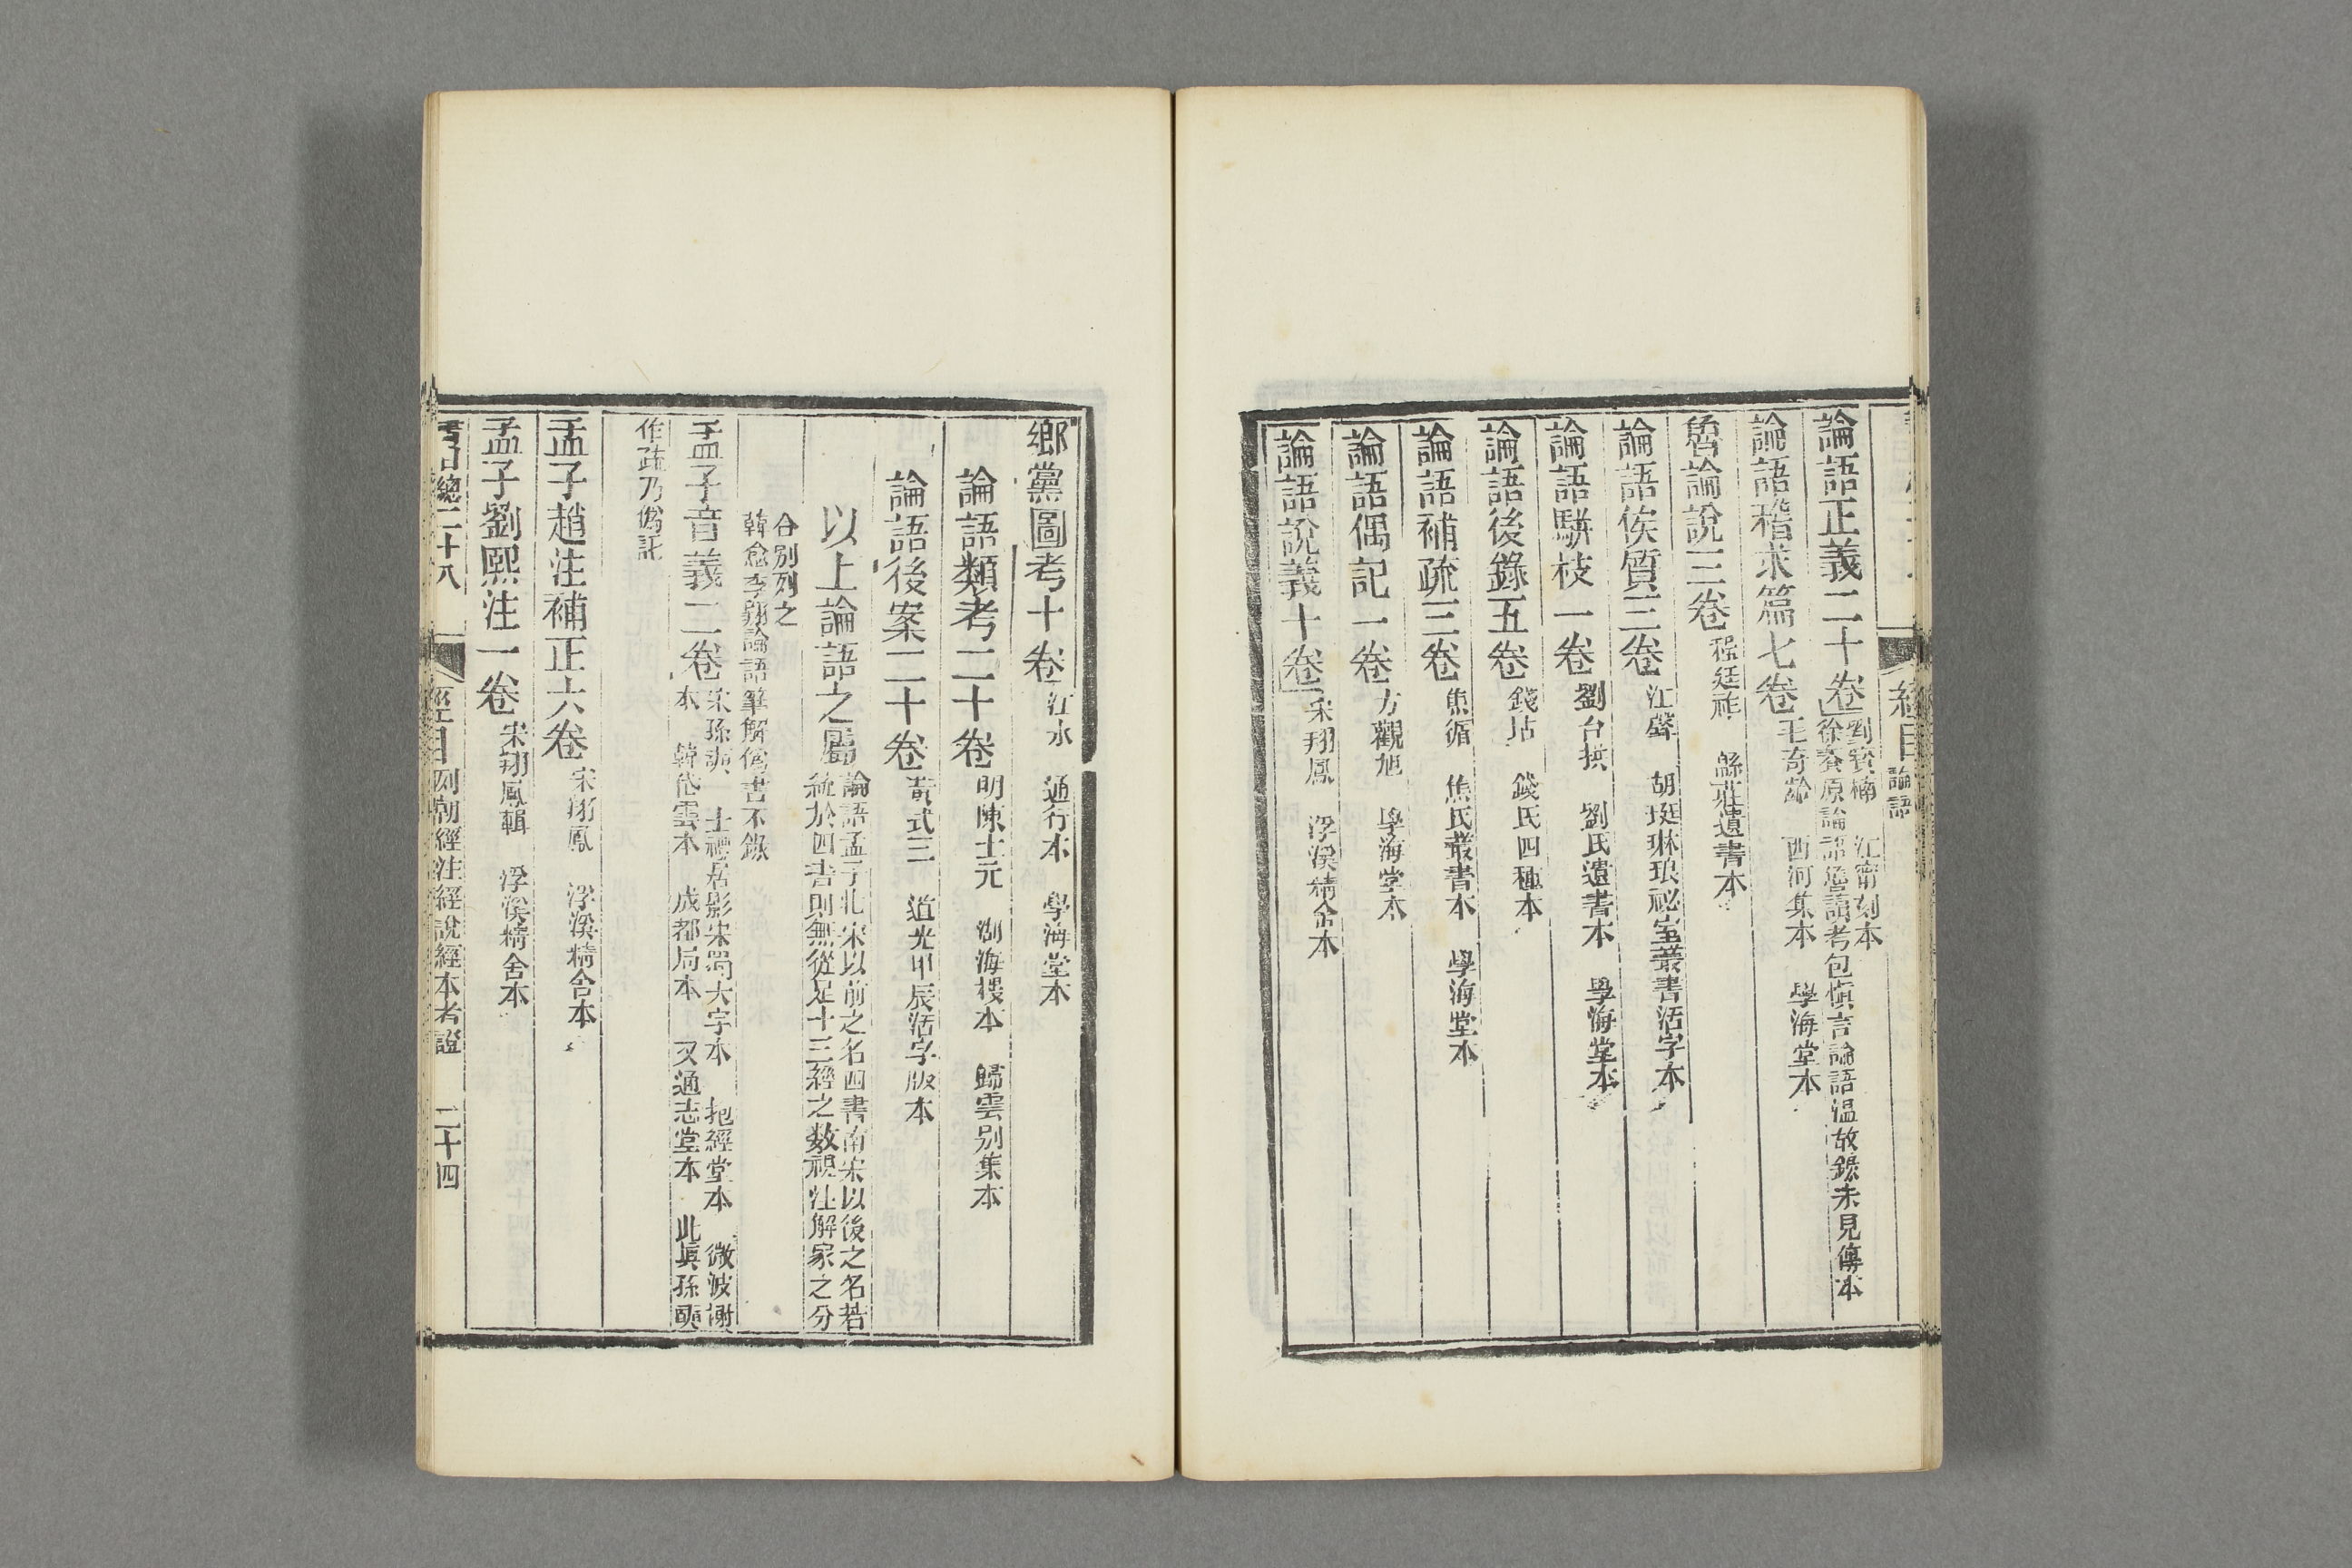 經目 論語
論語正義二十卷 劉寶楠 江甯刻本
徐養原論語魯讀考包慎言論語溫故錄未見傳本
論語稽求篇七卷 毛奇齡 西河集本 學海堂本
魯論說三卷 程廷祚 緜莊遺書本
論語俟質三卷 江聲 胡珽琳琅祕室叢書活字本
論語駢枝一卷 劉台拱 劉氏遺書本 學海堂本
論語後錄五卷 錢坫 錢氏四種本
論語補疏三卷 焦循 焦氏叢書本 學海堂本
論語偶記一卷 方觀旭 學海堂本
論語說義十卷 宋翔鳳 浮溪精舍本
鄉黨圖考十卷 江永 通行本 學海堂本
論語類考二十卷 明陳士元 湖海樓本 歸雲別集本
論語後案二十卷 黃式三 道光甲辰活字版本
以上論語之屬 論語孟子北宋以前之名四書南宋以後之名若
統於四書則無從足十三經之數視注解家之分
合別列之
韓愈李翺論語筆解僞書不錄
孟子音義二卷 宋孫奭 士禮居影宋蜀大字本 抱經堂本 微波榭
本 韓岱雲本 成都局本 又通志堂本 此眞孫奭
作疏乃僞託
孟子趙注補正六卷 宋翔鳳 浮溪精舍本
孟子劉熙注一卷 宋翔鳳輯 浮溪精舍本
書目總二十八 經目 列朝經注經說經本考證 二十四